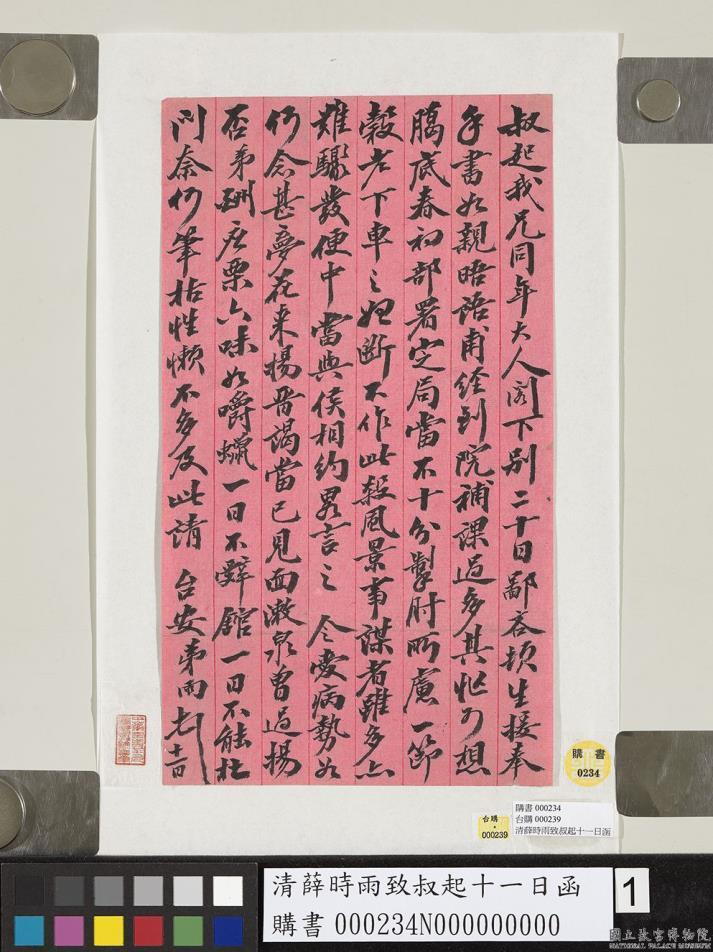 叔起我兄同年大人閣下別二十日鄙吝頓生接奉
手書如親晤語甫經到院補課過多其忙可想
臈底春初部署定局當不十分掣肘所慮一節
穀老下車之始斷不作此殺風景事謀者雖多亦
難驟發便中當與侯相約畧言之 令愛病勢如
何念甚夢花來揚晉謁當已見面漱泉曾過揚
否弟酬應票六味如嚼蠟一日不辭館一日不能杜
門奈何筆枯性懶不多及此請 台安弟雨 十一日
購書
0234
台購
000239
購書 000234
台購 000239
清薛時雨致叔起十一日函
清薛時雨致叔起十一日函
購書 000234N000000000
1
國立故宮博物院
NATIONAL PALACE MUSEUM